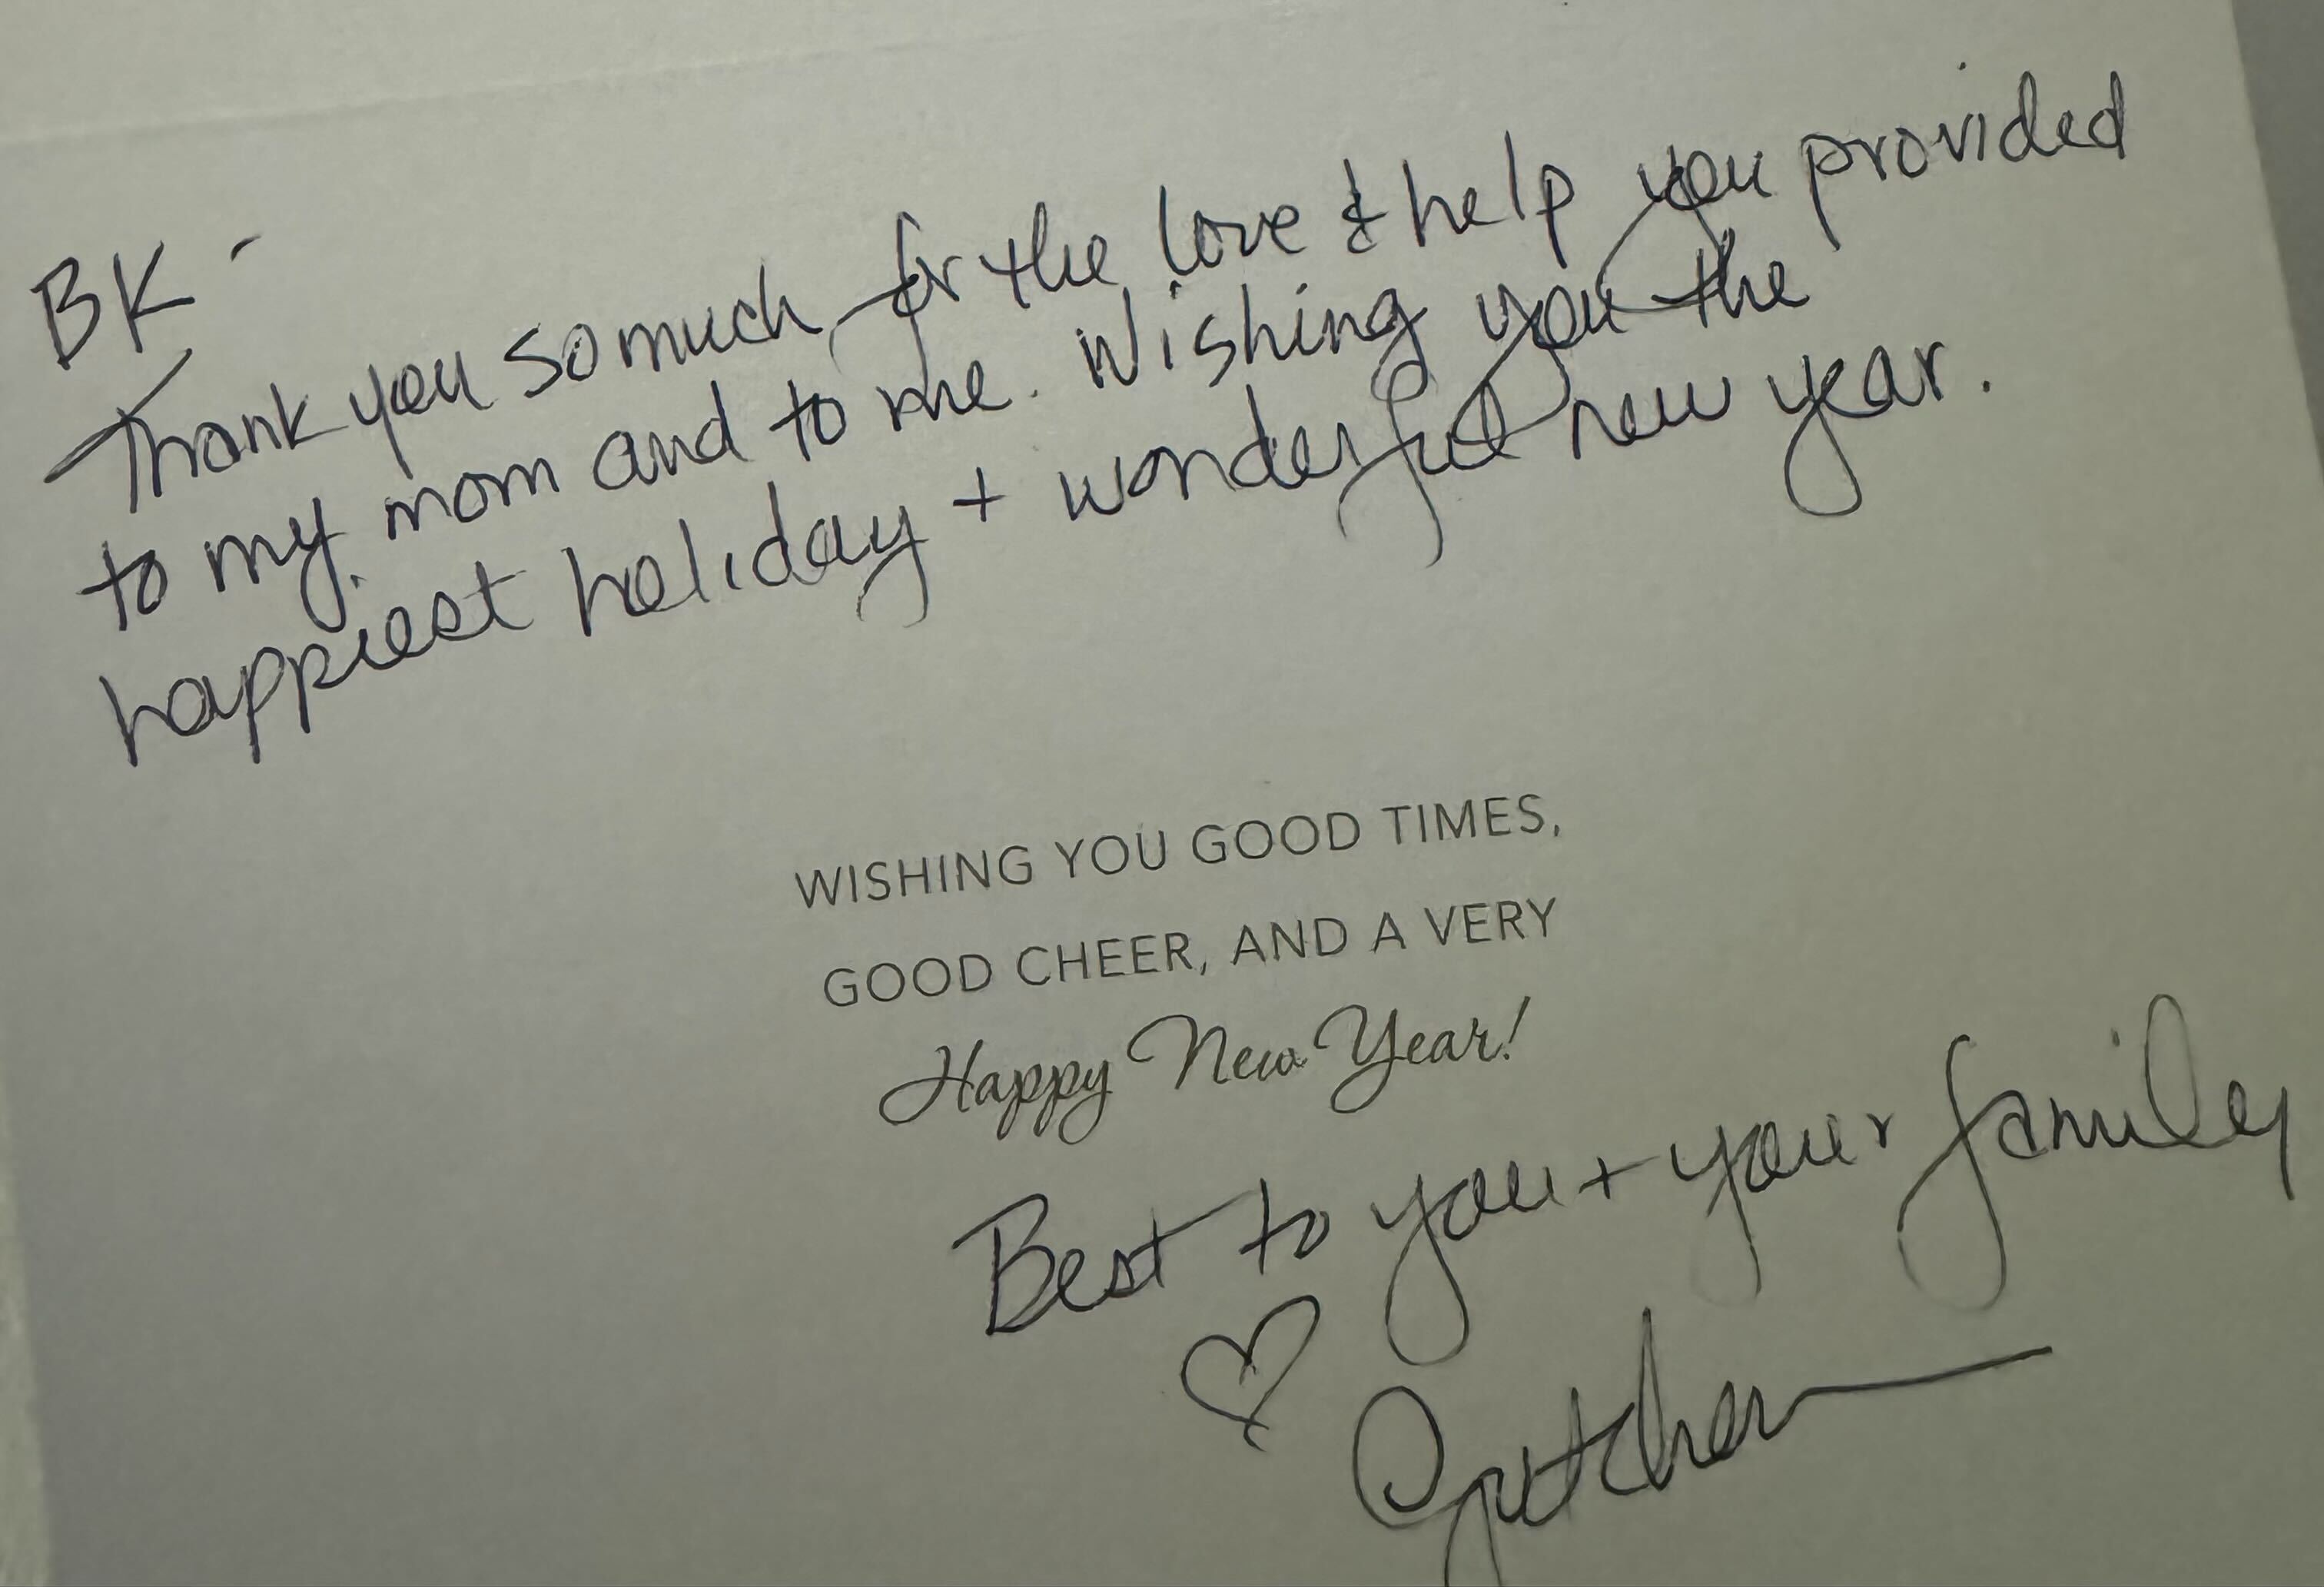 BK -
Thank you so much for the love & help you provided
to my mom and to me. Wishing you the
happiest holiday + wonderful new year.
WISHING YOU GOOD TIMES,
GOOD CHEER, AND A VERY
Happy New Year!
Best to you + your family
♡ Gretchen